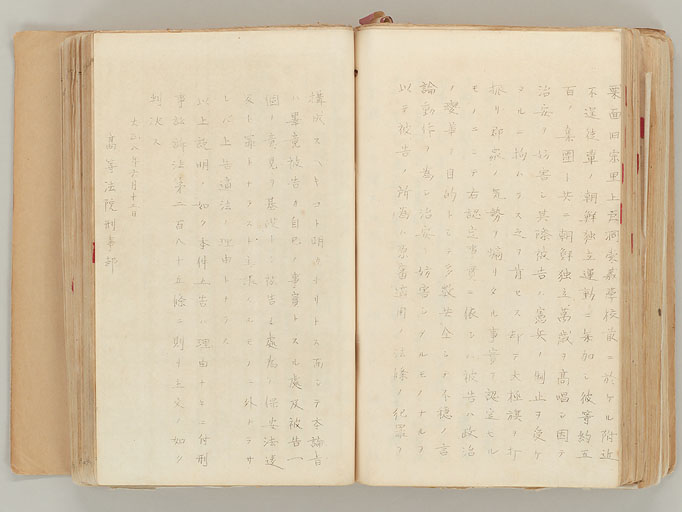 葉面旧宗里上 洞 学校前ニ於ケル附近
不逞徒輩ノ朝鮮独立運動ニ参加シ彼等約五
百ノ集団ト共ニ朝鮮独立萬歳ヲ高唱シ因テ
治安ヲ妨害シ其際被告ハ憲兵ノ制止ヲ受ケ
タルニ拘ハラス之ヲ肯セス却テ太極旗ヲ打
振リ群衆ノ気勢ヲ煽リタル事実ヲ認定セル
モノニシテ右認定事実ニ依レハ被告ハ政治
ノ変革ヲ目的トシテ多数共合シテ不穏ノ言
論動作ヲ為シ治安ヲ妨害シタルモノナルヲ
以テ被告ノ所為ハ原審適用ノ法条ノ犯罪ヲ
構成スヘキコト明白ナリトス而シテ本論旨
ハ畢竟被告カ自己ノ事実トスル処及被告一
個ノ意見ヲ基礎トシ被告ノ処為ハ保安法違
反ト罪トナラスト主張スルモノニ外ナラサ
レハ上告適法ノ理由トナラス
以上説明ノ如ク本件上告ハ理由ナキニ付刑
事訴訟法第二百八十五条ニ則リ主文ノ如ク
判決ス
大正八年 月十二日
高等法院刑事部